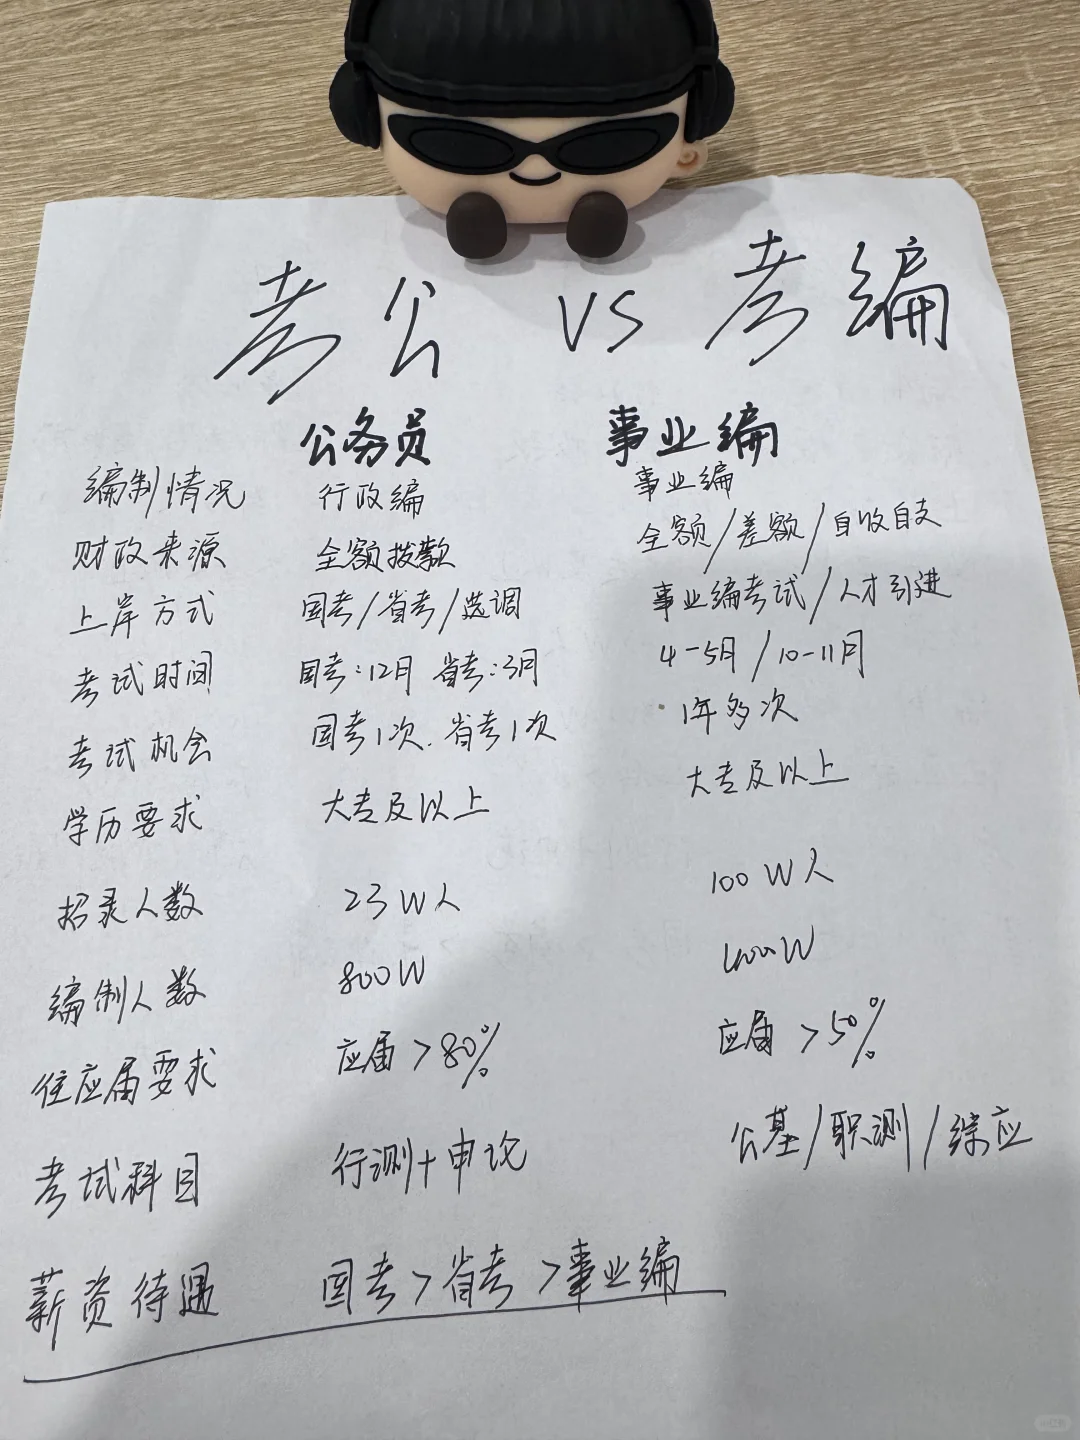 考公 VS 考编
公务员 事业编
编制情况 行政编 事业编
财政来源 全额拨款 全额/差额/自收自支
上岸方式 国考/省考/选调 事业编考试/人才引进
考试时间 国考:12月 省考:3月 4-5月/10-11月
考试机会 国考1次. 省考1次 1年多次
学历要求 大专及以上 大专及以上
招录人数 23W人 100W人
编制人数 800W 400W
往应届要求 应届>80% 应届>50%
考试科目 行测+申论 公基/职测/综应
薪资待遇 国考>省考>事业编